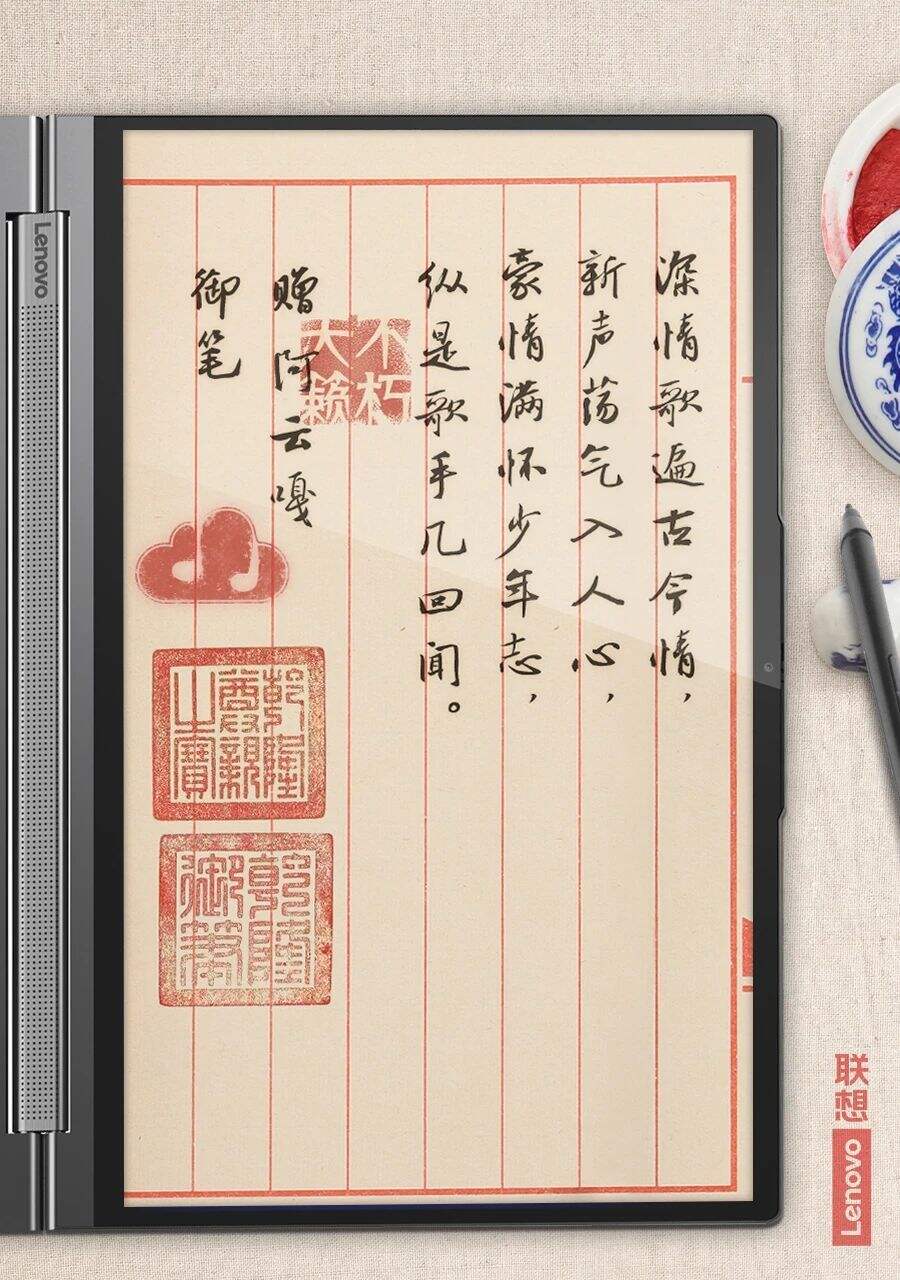 深情歌遍古今情，
新声荡气入人心，
豪情满怀少年志，
纵是歌手几回闻。
不朽
天籁
赠阿云嘎
御笔
乾隆
御筆
Lenovo
联想
Lenovo